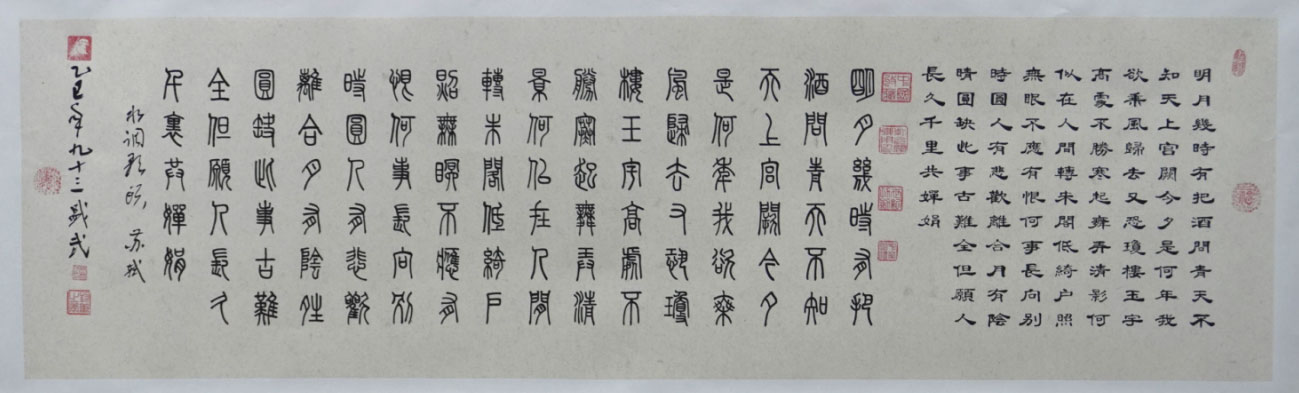 明月幾時有把酒問青天不
知天上宮闕今夕是何年我
欲乘風歸去又恐瓊樓玉宇
高處不勝寒起舞弄清影何
似在人間轉朱閣低綺户照
無眠不應有恨何事長向別
時圓人有悲歡離合月有陰
晴圓缺此事古難全但願人
長久千里共嬋娟
明月幾時有把
酒問青天不知
天上宮闕今夕
是何年我欲乘
風歸去又恐瓊
樓王宇高處不
勝寒起舞弄清
景何侣在人間
轉朱閣低綺戶
照無瞑不應有
恨何事長向別
時圓人有悲歡
離合月有陰姓
圓缺此事古難
全但願人長久
千裏共嬋娟
水调歌頭，苏轼
乙巳年九十三